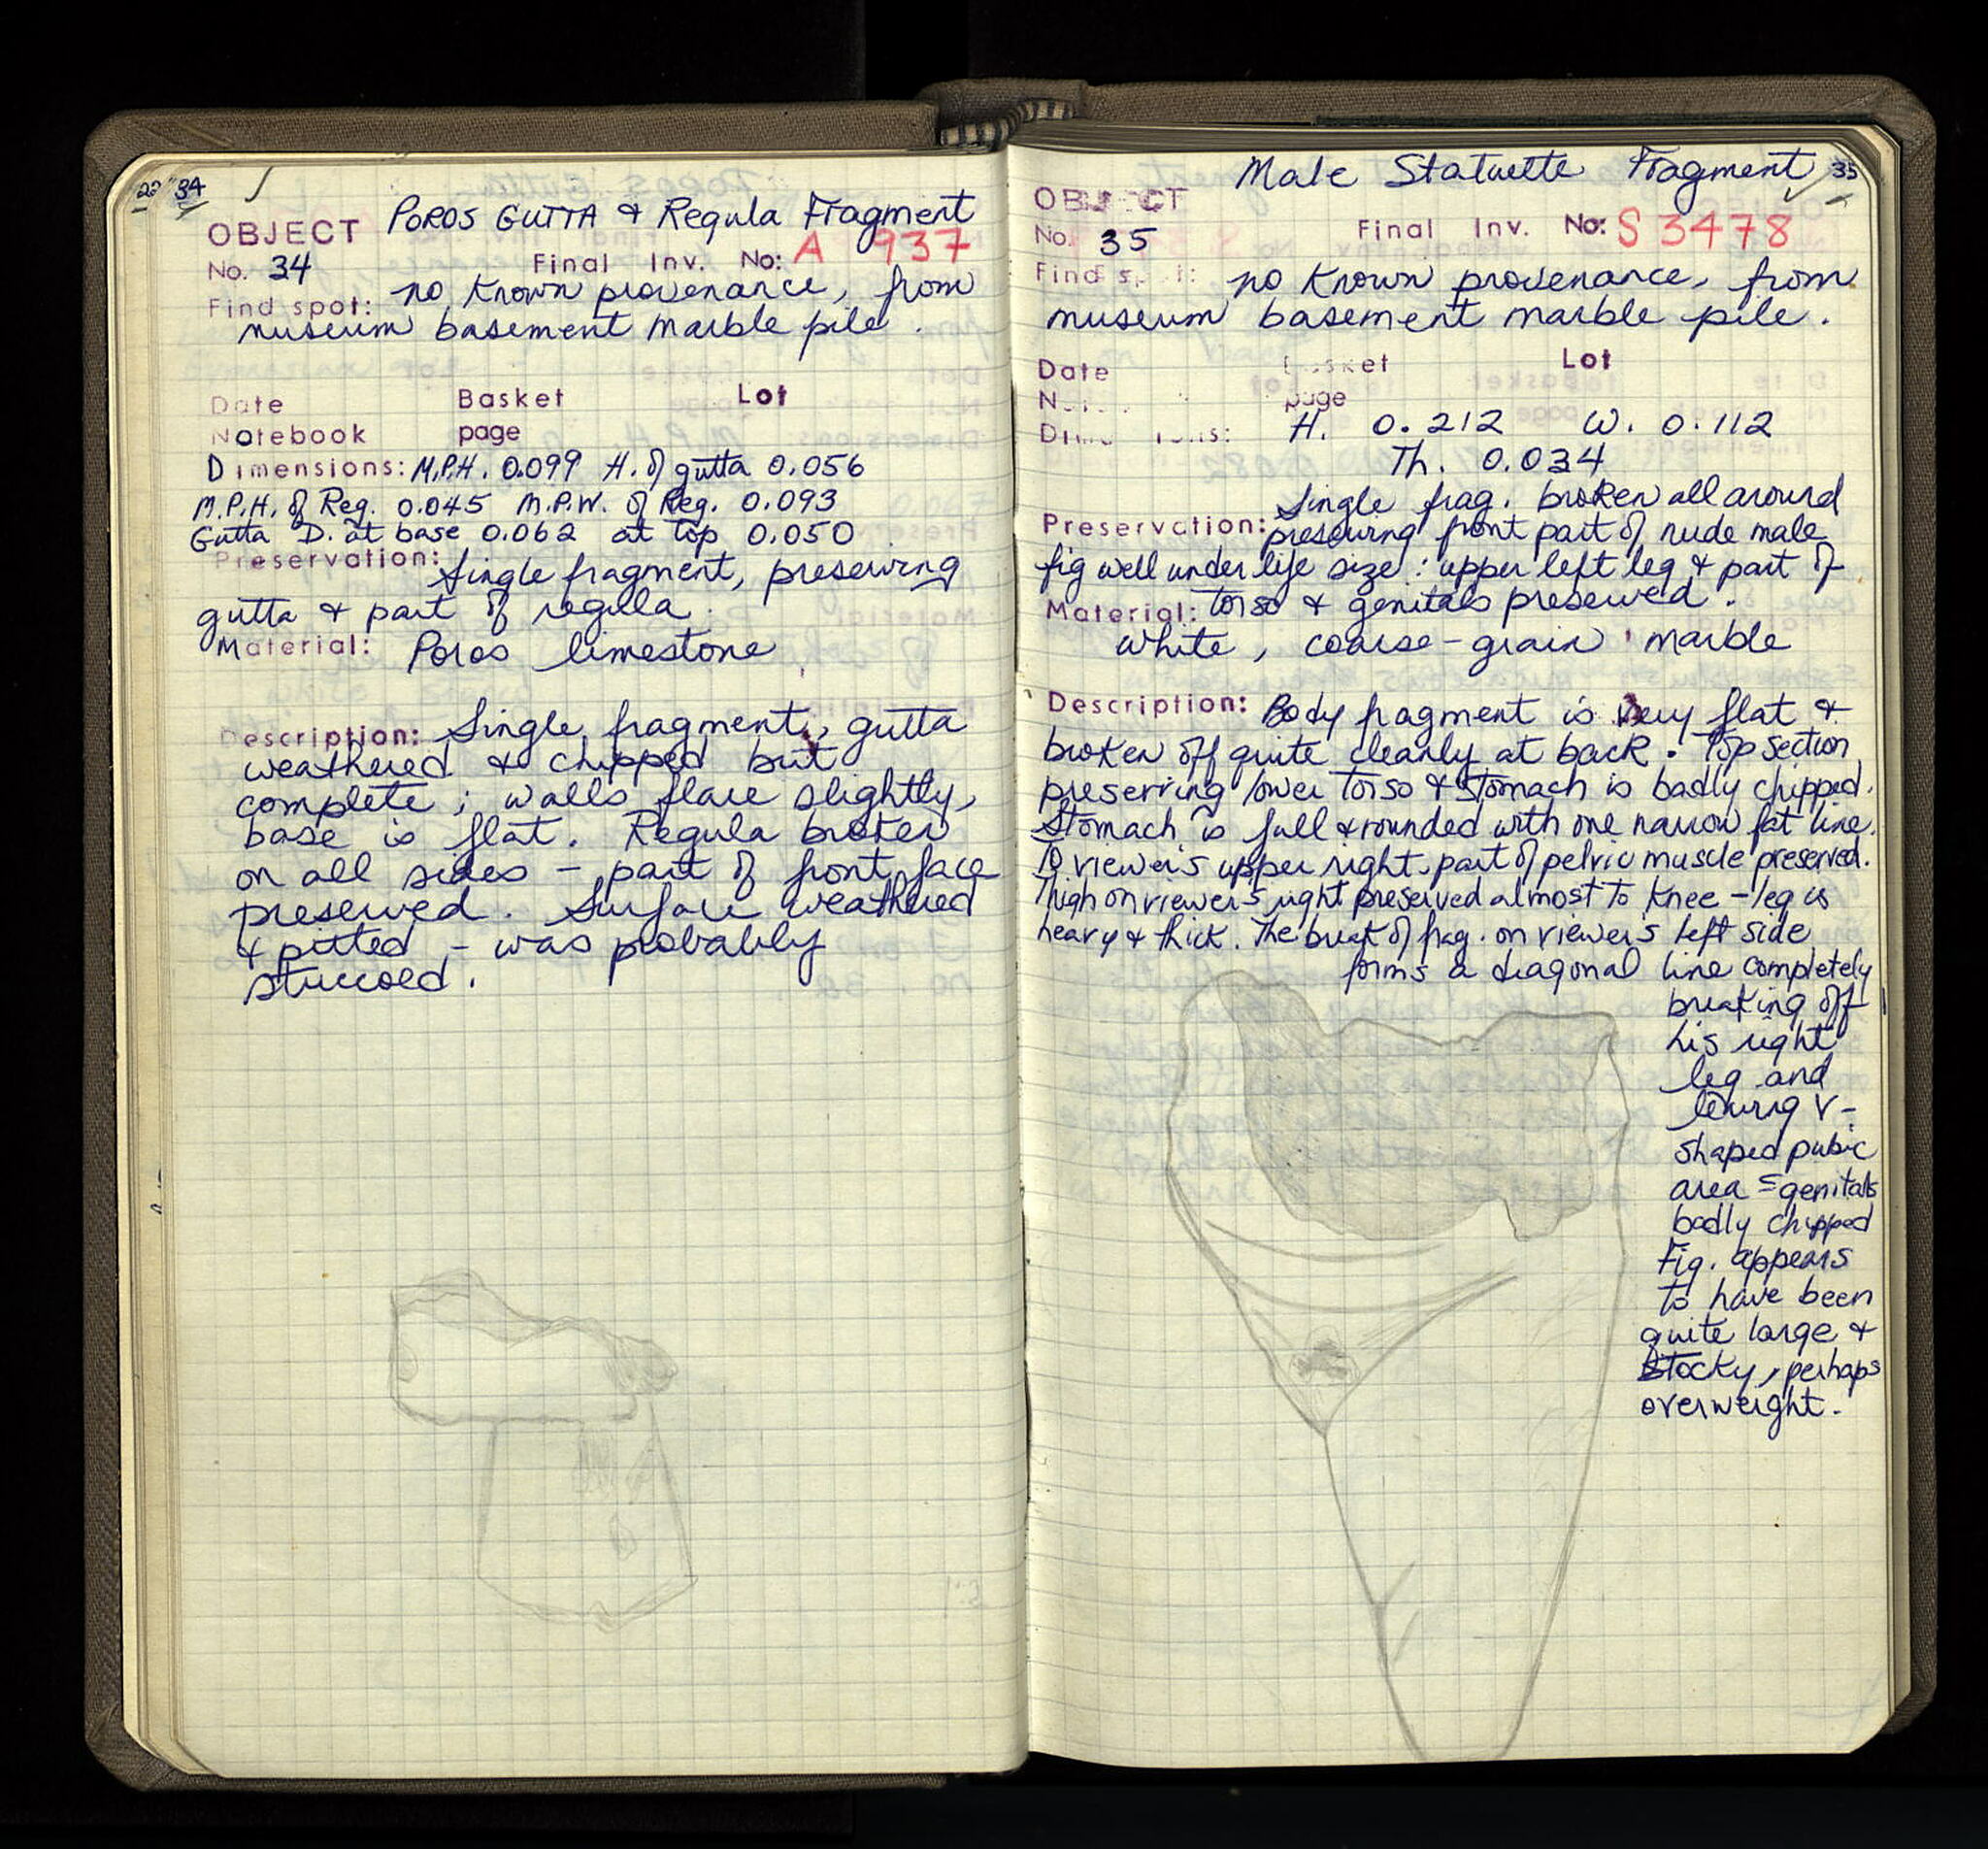 22 34
OBJECT POROS GUTTA & Regula Fragment
No. 34 Final Inv. No: A 937
Find spot: no known provenance, from
museum basement marble pile.
Date Basket Lot
Notebook page
Dimensions: M.P.H. 0.099 H. of gutta 0.056
M.P.H. of Reg. 0.045 M.P.W. of Reg. 0.093
Gutta D. at base 0.062 at top 0.050
Preservation: Single fragment, preserving
gutta & part of regula.
Material: Poros limestone
Description: Single fragment, gutta
weathered & chipped but
complete; walls flare slightly,
base is flat. Regula broken
on all sides - part of front face
preserved. Surface weathered
& pitted - was probably
stuccoed.
Male Statuette Fragment 35
OBJECT
No. 35 Final Inv. No: S 3478
Find spot: no known provenance, from
museum basement marble pile.
Date Basket Lot
page
Dimensions: H. 0.212 W. 0.112
Th. 0.034
Single frag. broken all around
Preservation: preserving front part of nude male
fig well under life size: upper left leg & part of
Material: torso & genitals preserved.
white, coarse-grain marble
Description: Body fragment is very flat &
broken off quite cleanly at back. Top section
preserving lower torso & stomach is badly chipped.
Stomach is full & rounded with one narrow fat line.
To viewer's upper right, part of pelvic muscle preserved.
Thigh on viewer's right preserved almost to knee - leg is
heavy & thick. The break of frag. on viewer's left side
forms a diagonal line completely
breaking off
his right
leg and
leaving V-
shaped pubic
area - genitals
badly chipped
Fig. appears
to have been
quite large &
stocky, perhaps
overweight.